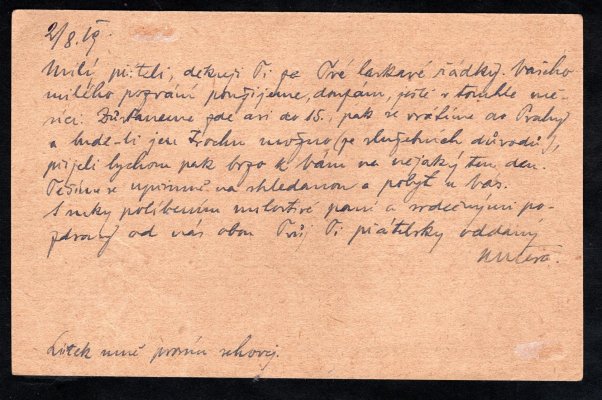 2/8. 19.
Milý příteli, děkuji Ti za Tvé laskavé řádky. Vašeho
milého pozvání použijeme, doufám, ještě v tomhle mě-
síci. Zůstaneme zde asi do 15., pak se vrátíme do Prahy
a bude-li jen trochu možno (ze služebních důvodů),
přijeli bychom pak brzo k vám na nějaký ten den.
Těšíme se upřímně na shledanou a pobyt u Vás.
S ruky políbením milostivé paní a srdečnými po-
zdravy od nás obou Tvůj Ti přátelsky oddaný
Lístek mně prosím schovej.